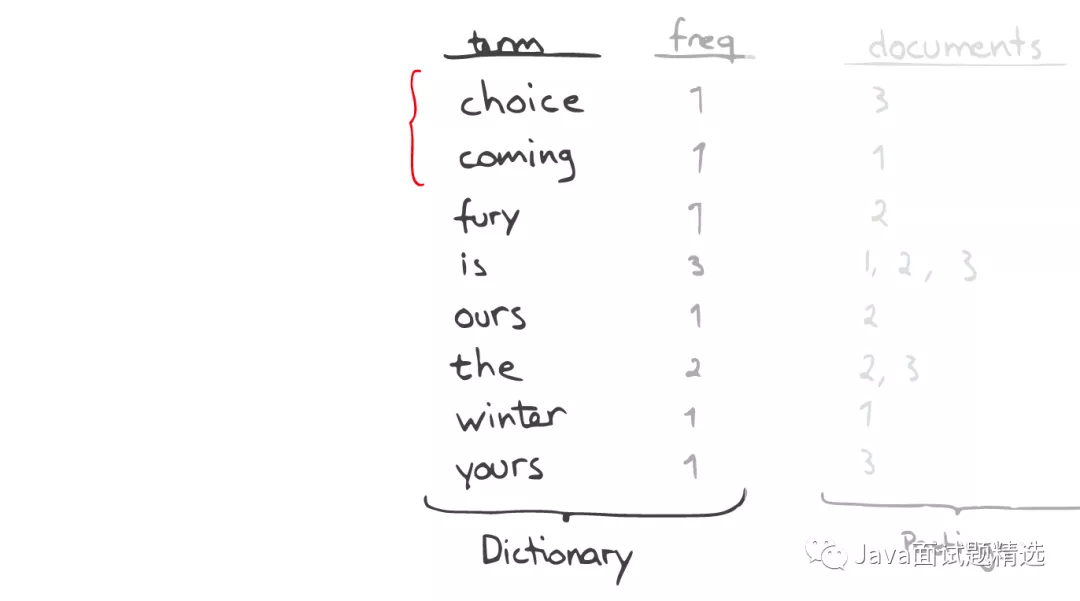 term freq documents
choice 1 3
coming 1 1
fury 1 2
is 3 1, 2, 3
ours 1 2
the 2 2, 3
winter 1 1
yours 1 3
Dictionary
Java面试题精选